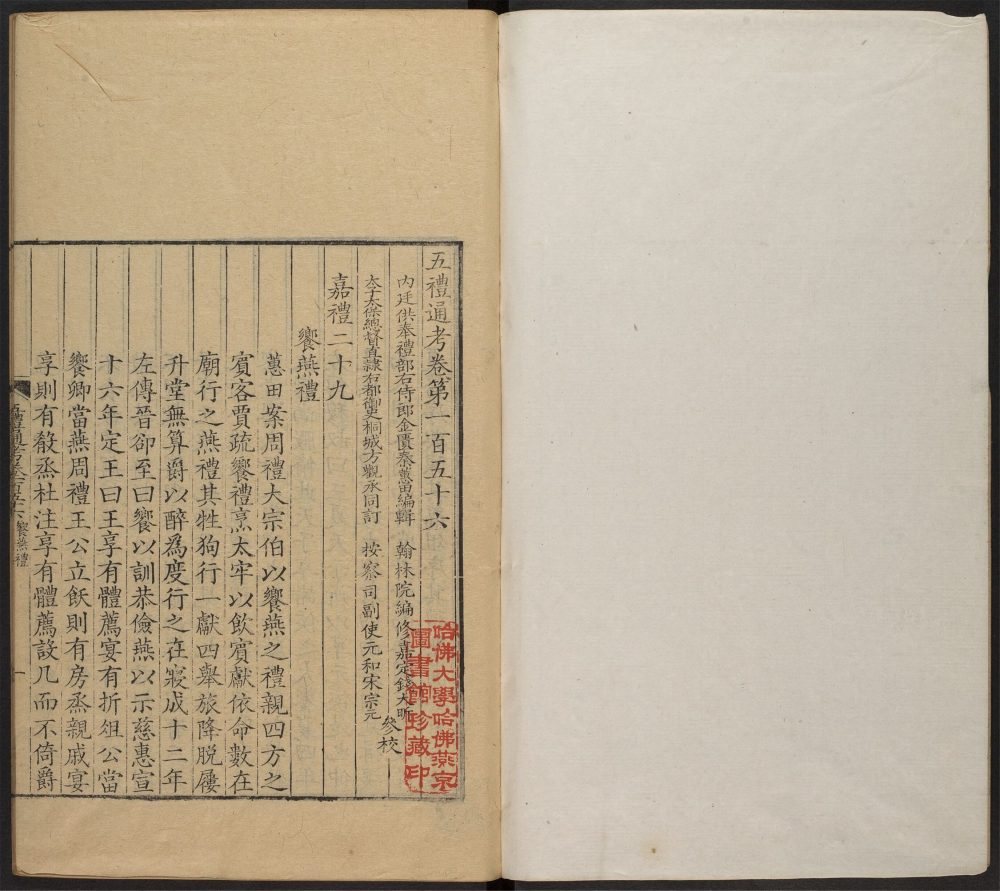 五禮通考卷第一百五十六
內廷供奉禮部右侍郎金匱秦蕙田編輯 翰林院編修嘉定錢大昕
太子太保總督直隸右都御史桐城方觀承同訂 按察司副使元和宋宗元 參校
嘉禮二十九
饗燕禮
蕙田案周禮大宗伯以饗燕之禮親四方之
賓客賈疏饗禮烹太牢以飲賓獻依命數在
廟行之燕禮其牲狗行一獻四舉旅降脫屨
升堂無算爵以醉為度行之在寢成十二年
左傳晉郤至曰饗以訓恭儉燕以示慈惠宣
十六年定王曰王享有體薦宴有折俎公當
饗卿當燕周禮王公立飫則有房烝親戚宴
享則有殽烝杜注享有體薦設几而不倚爵
五禮通考卷一百五十六 饗燕禮
一
哈佛大學哈佛燕京
圖書館珍藏印